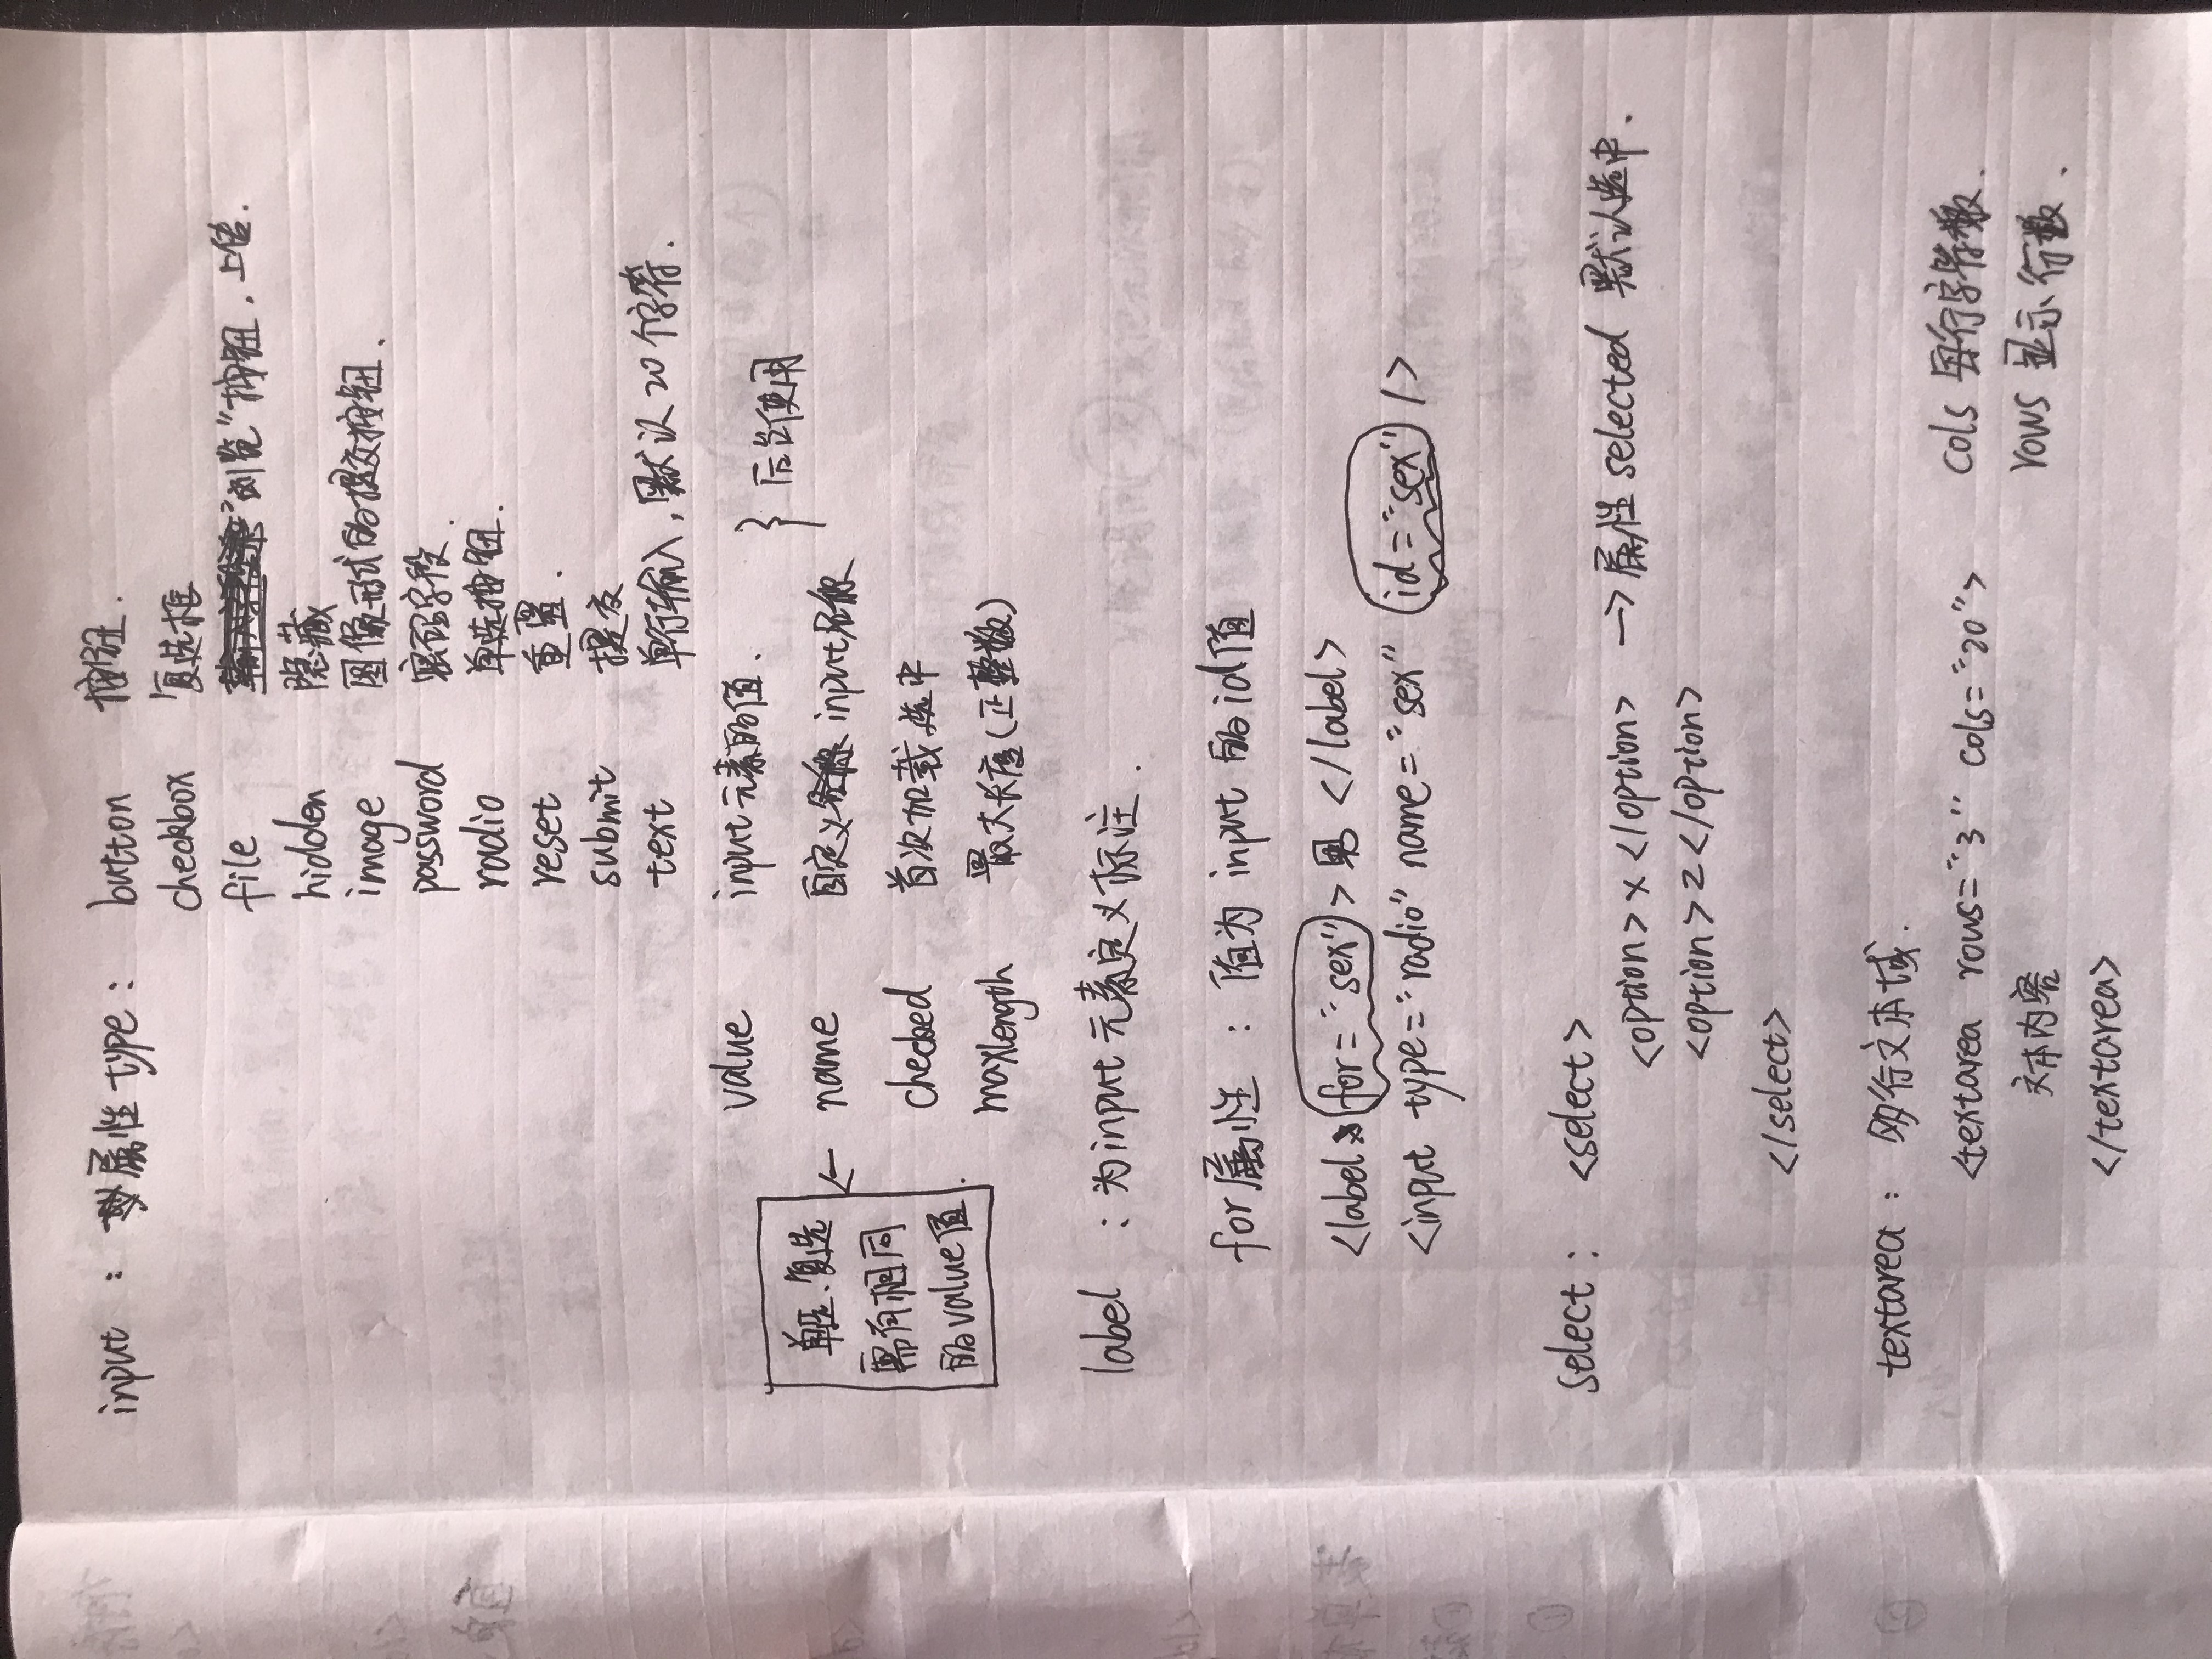 input : 属性type: button 按钮.
checkbox 复选框
file "浏览"按钮.上传.
hidden 隐藏
image 图像形式的提交按钮.
password 密码字段.
radio 单选按钮.
reset 重置.
submit 提交
text 单行输入,默认20个字符.
value input元素的值.
name 自定义 input名称
} 后台使用
← 单选.复选
需有相同
的value值.
checked 首次加载选中
maxlength 最大长度(正整数)
label :为input元素定义标注.
for属性 : 值为 input 的id值
<label for="sex">男 </label>
<input type="radio" name="sex" id="sex" />
select: <select>
<option>x</option> → 属性 selected 默认选中.
<option>2</option>
</select>
textarea: 多行文本域.
<textarea rows="3" cols="20"> cols 每行字符数.
文本内容 rows 显示行数.
</textarea>